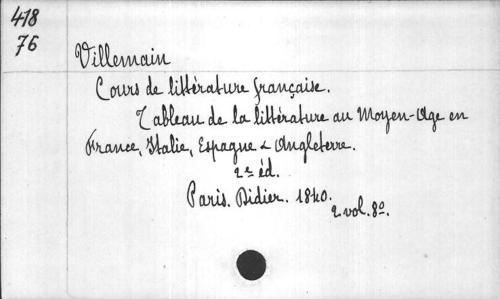 418
76
Villemain
Cours de littérature française.
Tableau de la littérature au Moyen-Age en
France, Italie, Espagne & Angleterre.
2e éd.
Paris. Didier. 1840.
2 vol. 8o.